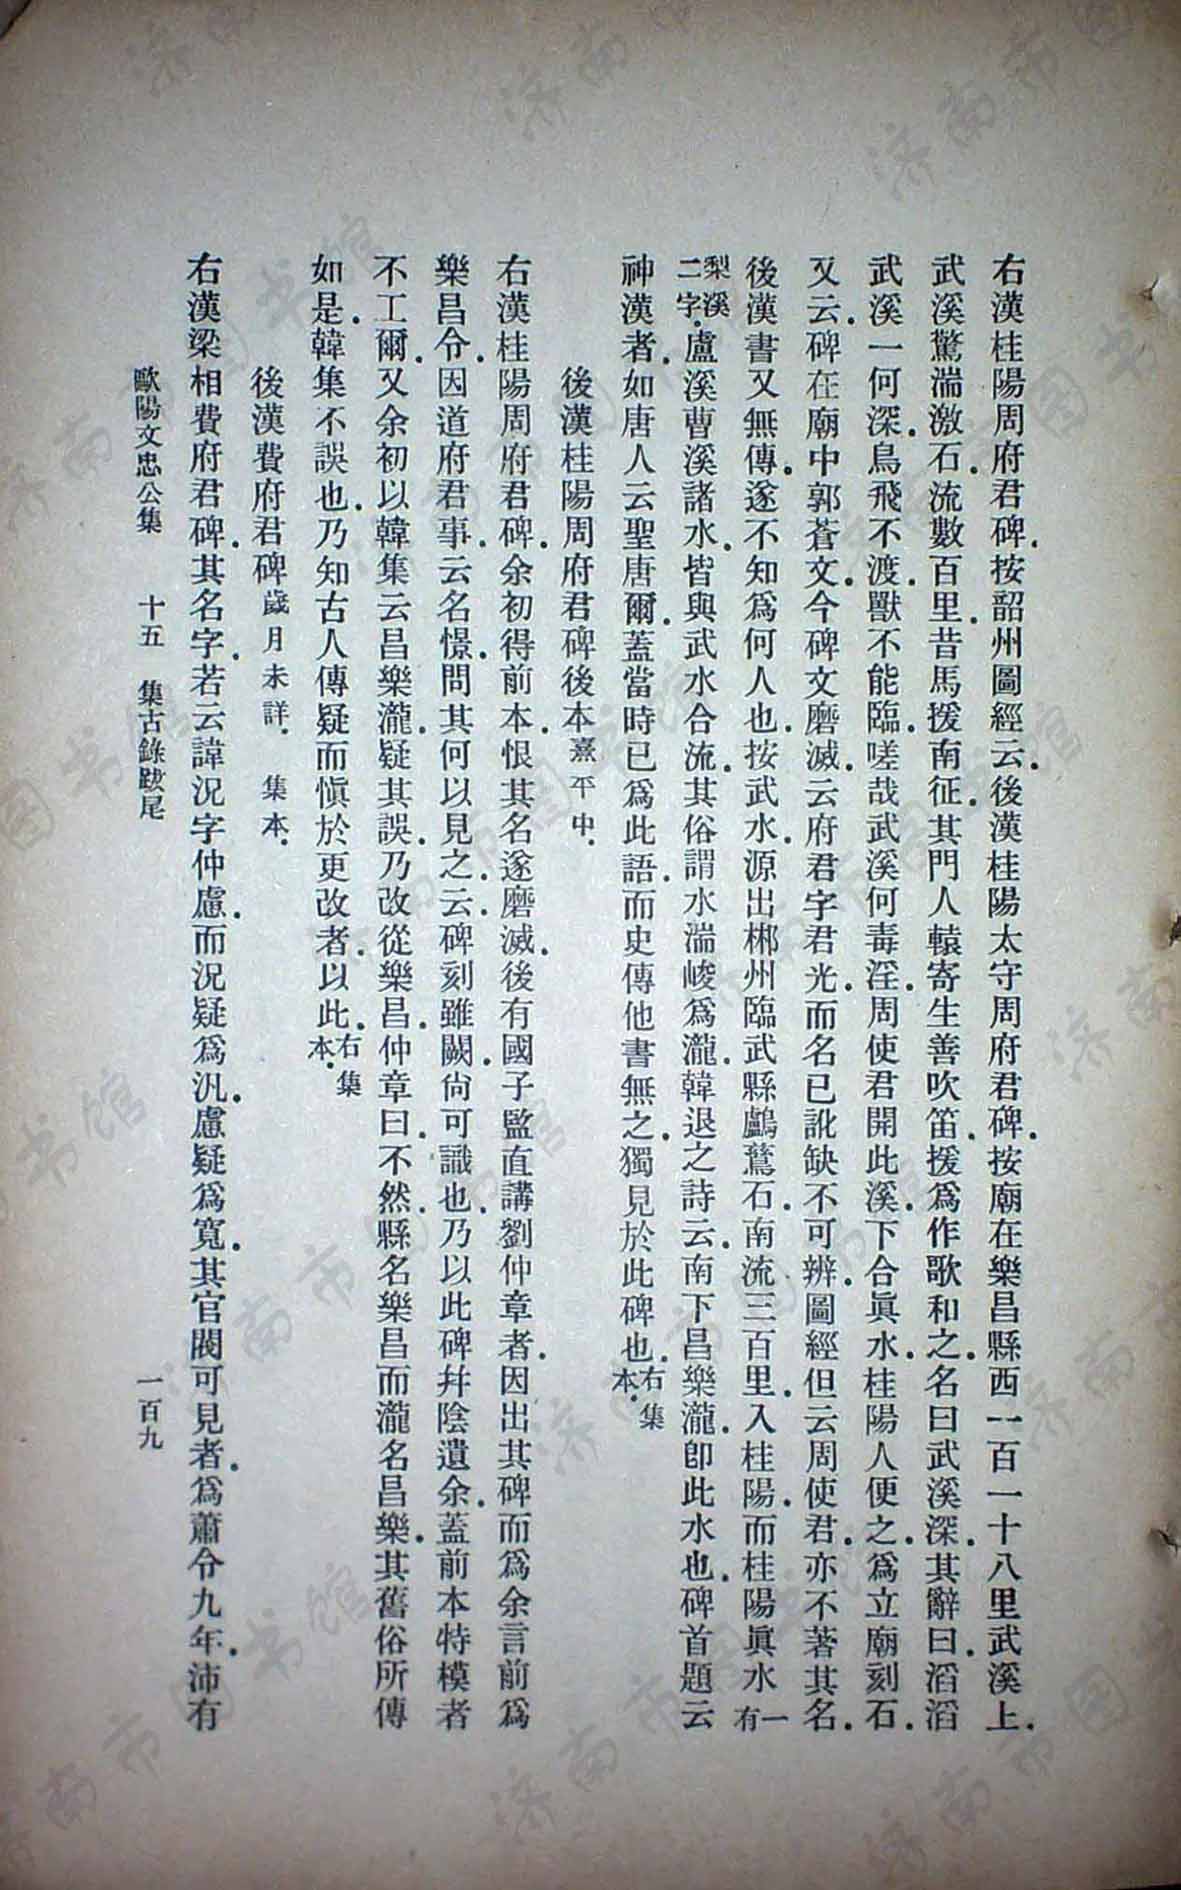 右漢桂陽周府君碑.按韶州圖經云.後漢桂陽太守周府君碑.按廟在樂昌縣西一百一十八里武溪上.
武溪驚湍激石.流數百里.昔馬援南征.其門人轅寄生善吹笛.援爲作歌和之.名曰武溪深.其辭曰.滔滔
武溪一何深.鳥飛不渡.獸不能臨.嗟哉武溪何毒淫.周使君開此溪.下合眞水.桂陽人便之.爲立廟刻石.
又云.碑在廟中郭蒼文.今碑文磨滅.云府君字君光.而名已訛缺不可辨.圖經但云周使君.亦不著其名.
後漢書又無傳.遂不知爲何人也.按武水.源出郴州臨武縣鸕鶿石.南流三百里.入桂陽.而桂陽眞水一有
梨溪二字.盧溪曹溪諸水.皆與武水合流.其俗謂水湍峻爲瀧.韓退之詩云.南下昌樂瀧.卽此水也.碑首題云
神漢者.如唐人云聖唐爾.蓋當時已爲此語.而史傳他書無之.獨見於此碑也.右集本.
後漢桂陽周府君碑後本熹平中.
右漢桂陽周府君碑.余初得前本.恨其名遂磨滅.後有國子監直講劉仲章者.因出其碑而爲余言前爲
樂昌令.因道府君事.云名憬.問其何以見之.云碑刻雖闕.尚可識也.乃以此碑幷陰遺余.蓋前本特模者
不工爾.又余初以韓集云昌樂瀧.疑其誤.乃改從樂昌.仲章曰.不然.縣名樂昌而瀧名昌樂.其舊俗所傳
如是.韓集不誤也.乃知古人傳疑而愼於更改者.以此.右集本.
後漢費府君碑歲月未詳. 集本.
右漢梁相費府君碑.其名字.若云諱況字仲慮.而況疑爲汎.慮疑爲寬.其官閥可見者.爲蕭令九年.沛有
歐陽文忠公集 十五 集古錄跋尾 一百九
济南市图书馆